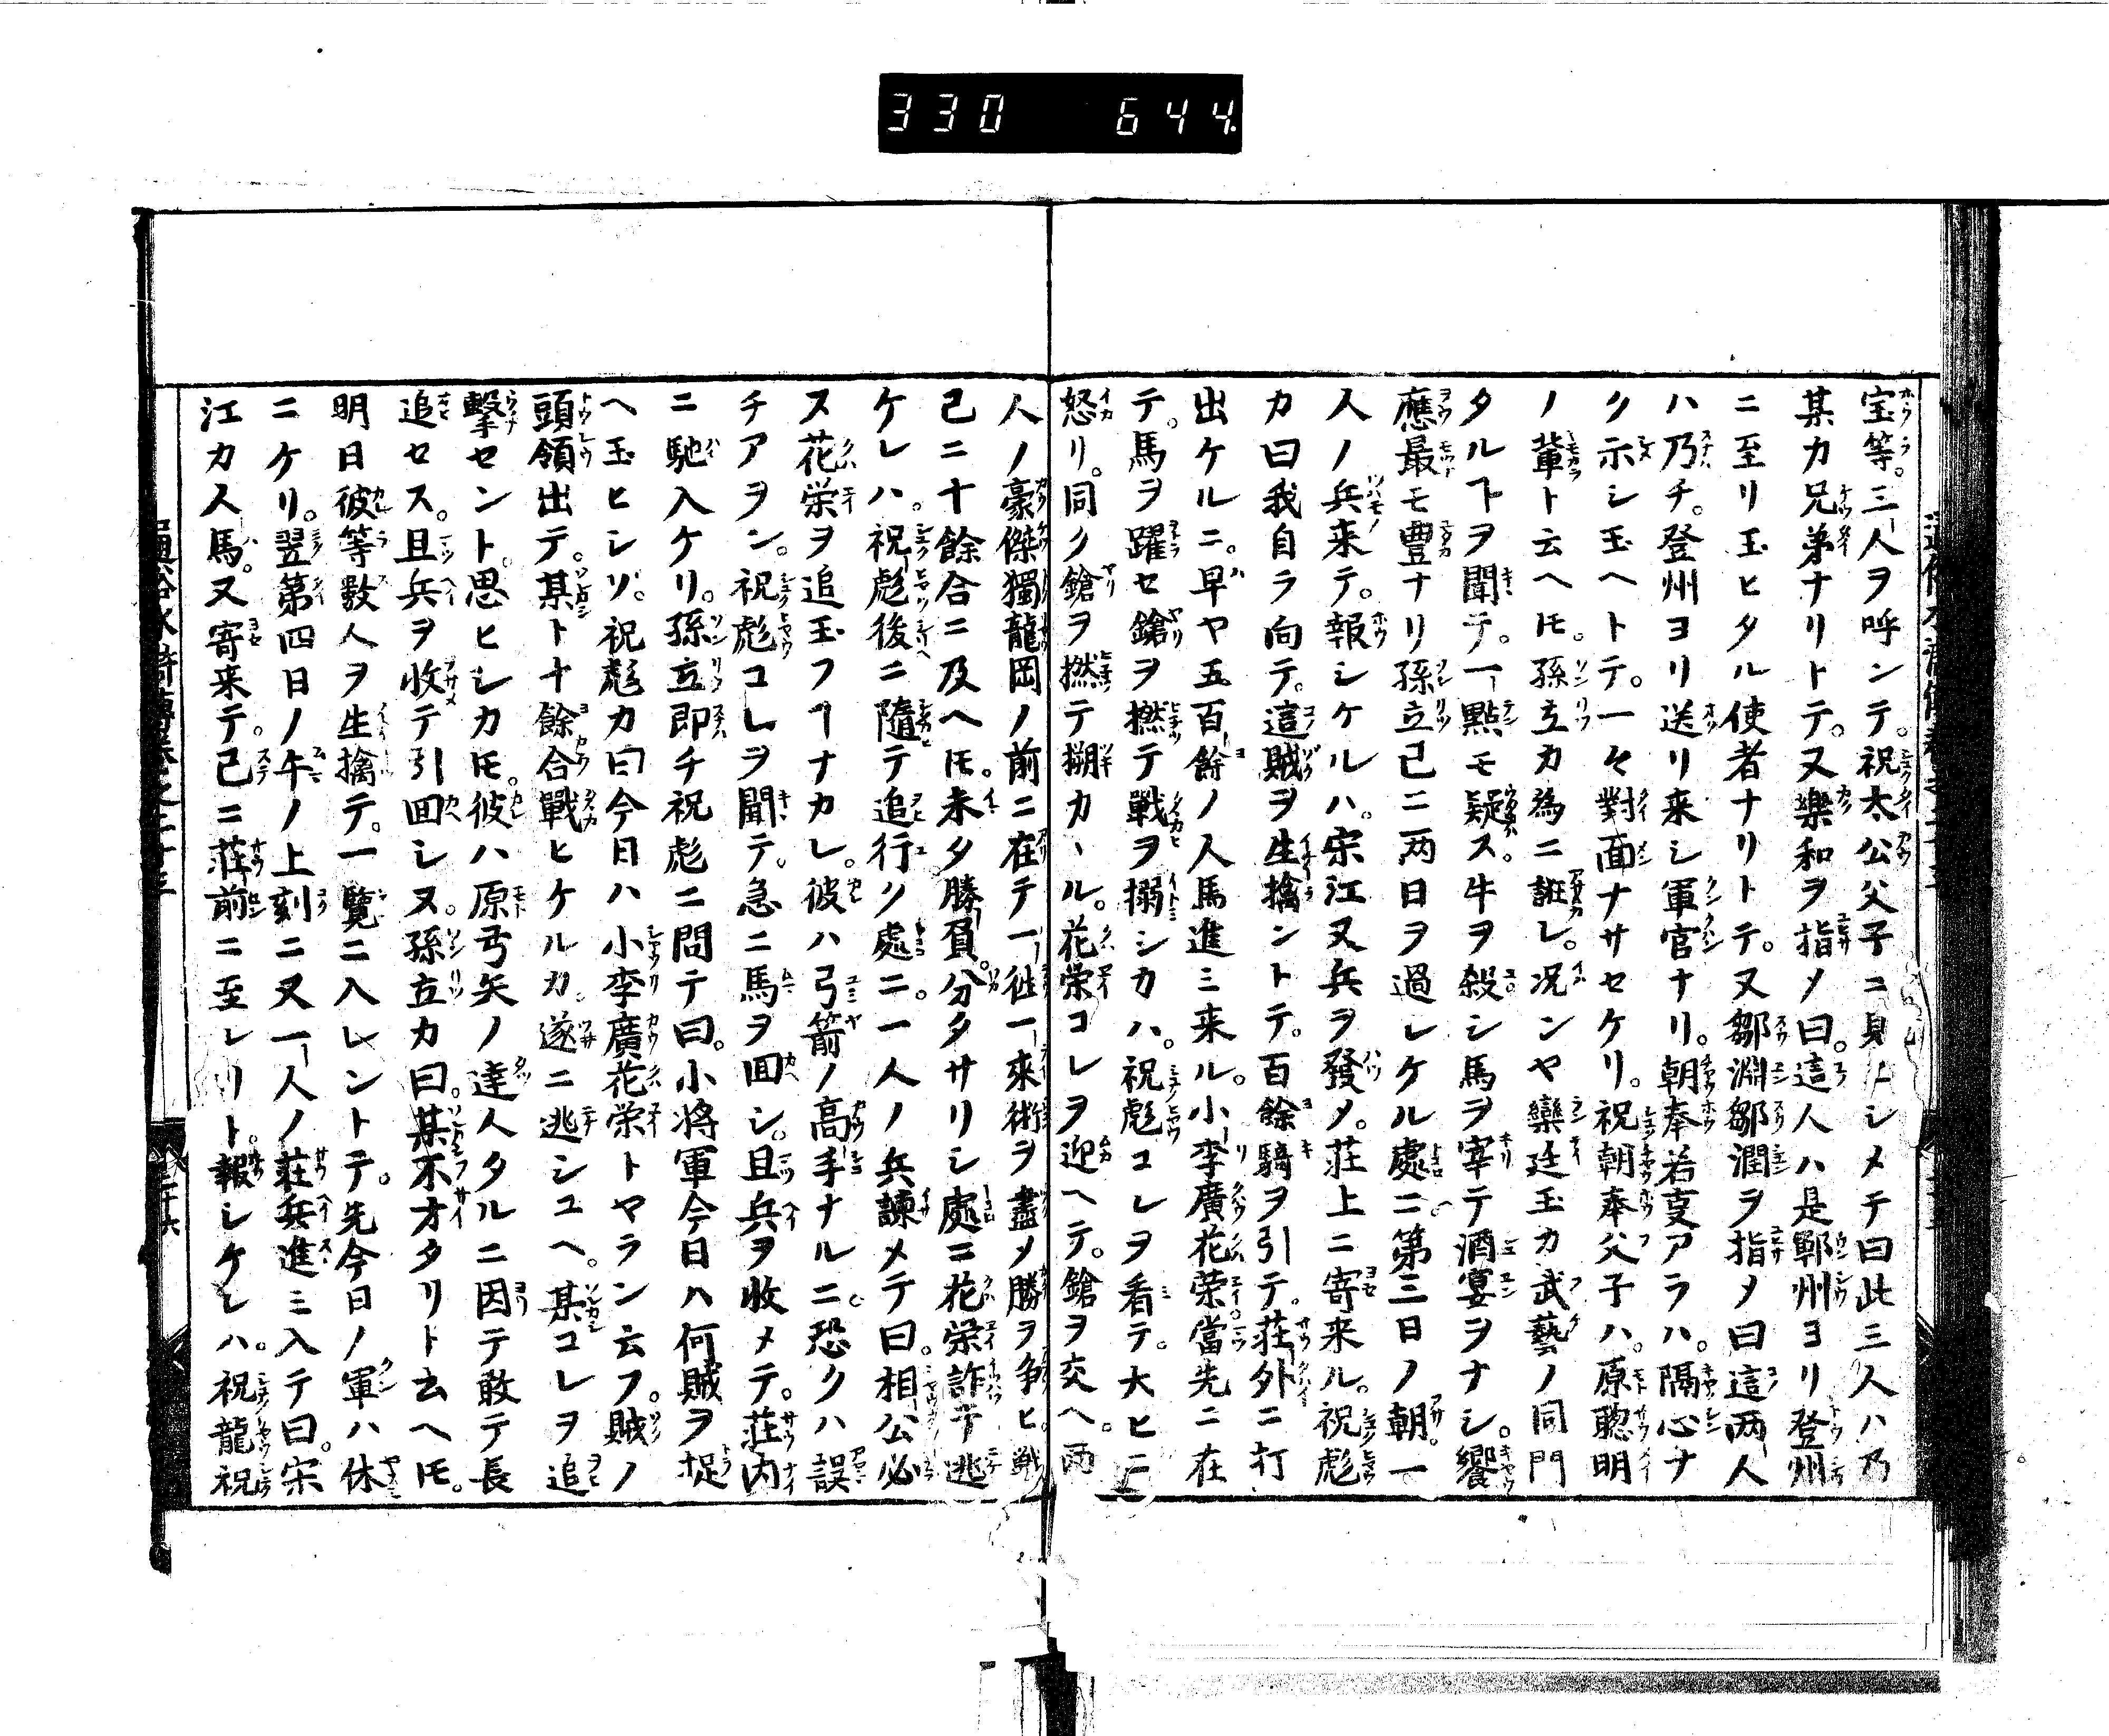 330 644.
宝等。三人ヲ呼ンテ。祝太公父子ニ見エシメテ曰此三人ハ乃
某カ兄弟ナリトテ。又樂和ヲ指メ曰。這人ハ是鄆州ヨリ登州
ニ至リ玉ヒタル使者ナリトテ。又鄒淵鄒潤ヲ指メ曰這两人
ハ乃チ。登州ヨリ送リ来シ軍官ナリ。朝奉若㕝アラハ。隔心ナ
ク示シ玉ヘトテ。一々對面ナサセケリ。祝朝奉父子ハ。原聦明
ノ輩ト云ヘ𪜈。孫立カ為ニ誑レ。况ンヤ欒廷玉カ武藝ノ同門
タルヿヲ聞テ。一點モ疑ス。牛ヲ殺シ馬ヲ宰テ酒宴ヲナシ。饗
應最モ豊ナリ孫立已ニ两日ヲ過レケル處ニ。第三日ノ朝。一
人ノ兵来テ。報シケルハ。宋江又兵ヲ發メ。莊上ニ寄来ル。祝彪
カ曰我自ラ向テ。這賊ヲ生擒ントテ。百餘騎ヲ引テ。莊外ニ打
出ケルニ。早ヤ五百餘ノ人馬進ミ来ル。小李廣花荣當先ニ在
テ。馬ヲ躍セ鎗ヲ撚テ戰ヲ搦シカハ。祝彪コレヲ看テ。大ヒニ
怒リ。同ク鎗ヲ撚テ搠カヽル。花栄コレヲ迎ヘテ。鎗ヲ交ヘ。两
人ノ豪傑獨龍岡ノ前ニ在テ一往一來術ヲ盡メ勝ヲ争ヒ。戦
已ニ十餘合ニ及ヘ𪜈。未タ勝負。分タサリシ處ニ花栄詐テ逃
ケレハ。祝彪後ニ隨テ追行ク處ニ。一人ノ兵諫メテ曰。相公必
ス花栄ヲ追玉フヿナカレ。彼ハ弓箭ノ高手ナルニ。恐クハ誤
チアヲン。祝彪コレヲ聞テ。急ニ馬ヲ回シ。且兵ヲ收メテ。莊内
ニ馳入ケリ。孫立即チ祝彪ニ問テ曰。小将軍今日ハ何賊ヲ捉
ヘ玉ヒシソ。祝彪カ曰今日ハ小李廣花栄トヤラン云フ。賊ノ
頭領出テ。某ト十餘合戰ヒケルカ。遂ニ逃シユヘ。某コレヲ追
擊セント。思ヒシカ𪜈。彼ハ原弓矢ノ達人タルニ因テ敢テ長
追セス。且兵ヲ收テ引囬シヌ。孫立カ曰。某不才タリト云ヘ𪜈。
明日彼等數人ヲ生擒テ。一覽ニ入レントテ。先今日ノ軍ハ休
ニケリ。翌第四日ノ午ノ上刻ニ又一人ノ莊兵進ミ入テ曰。宋
江カ人馬。又寄来テ。已ニ莊前ニ至レリト。報シケレハ。祝龍祝